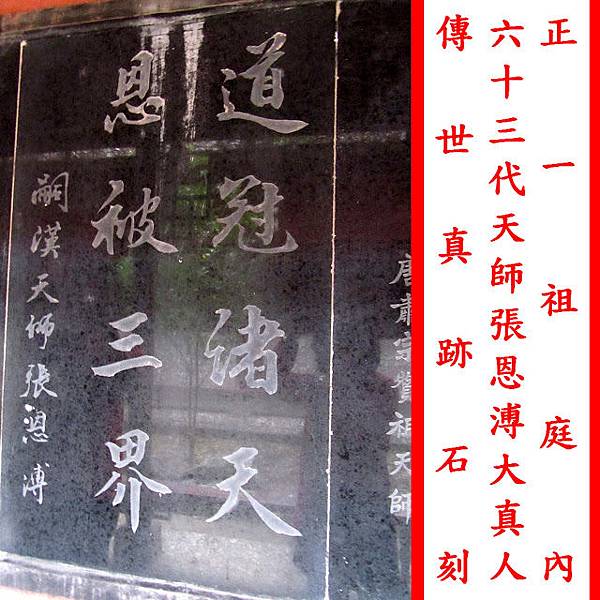 正一祖庭內
六十三代天師張恩溥大真人
傳世真跡石刻
唐肅宗贊祖天師
道冠諸天
恩被三界
嗣漢天師張恩溥